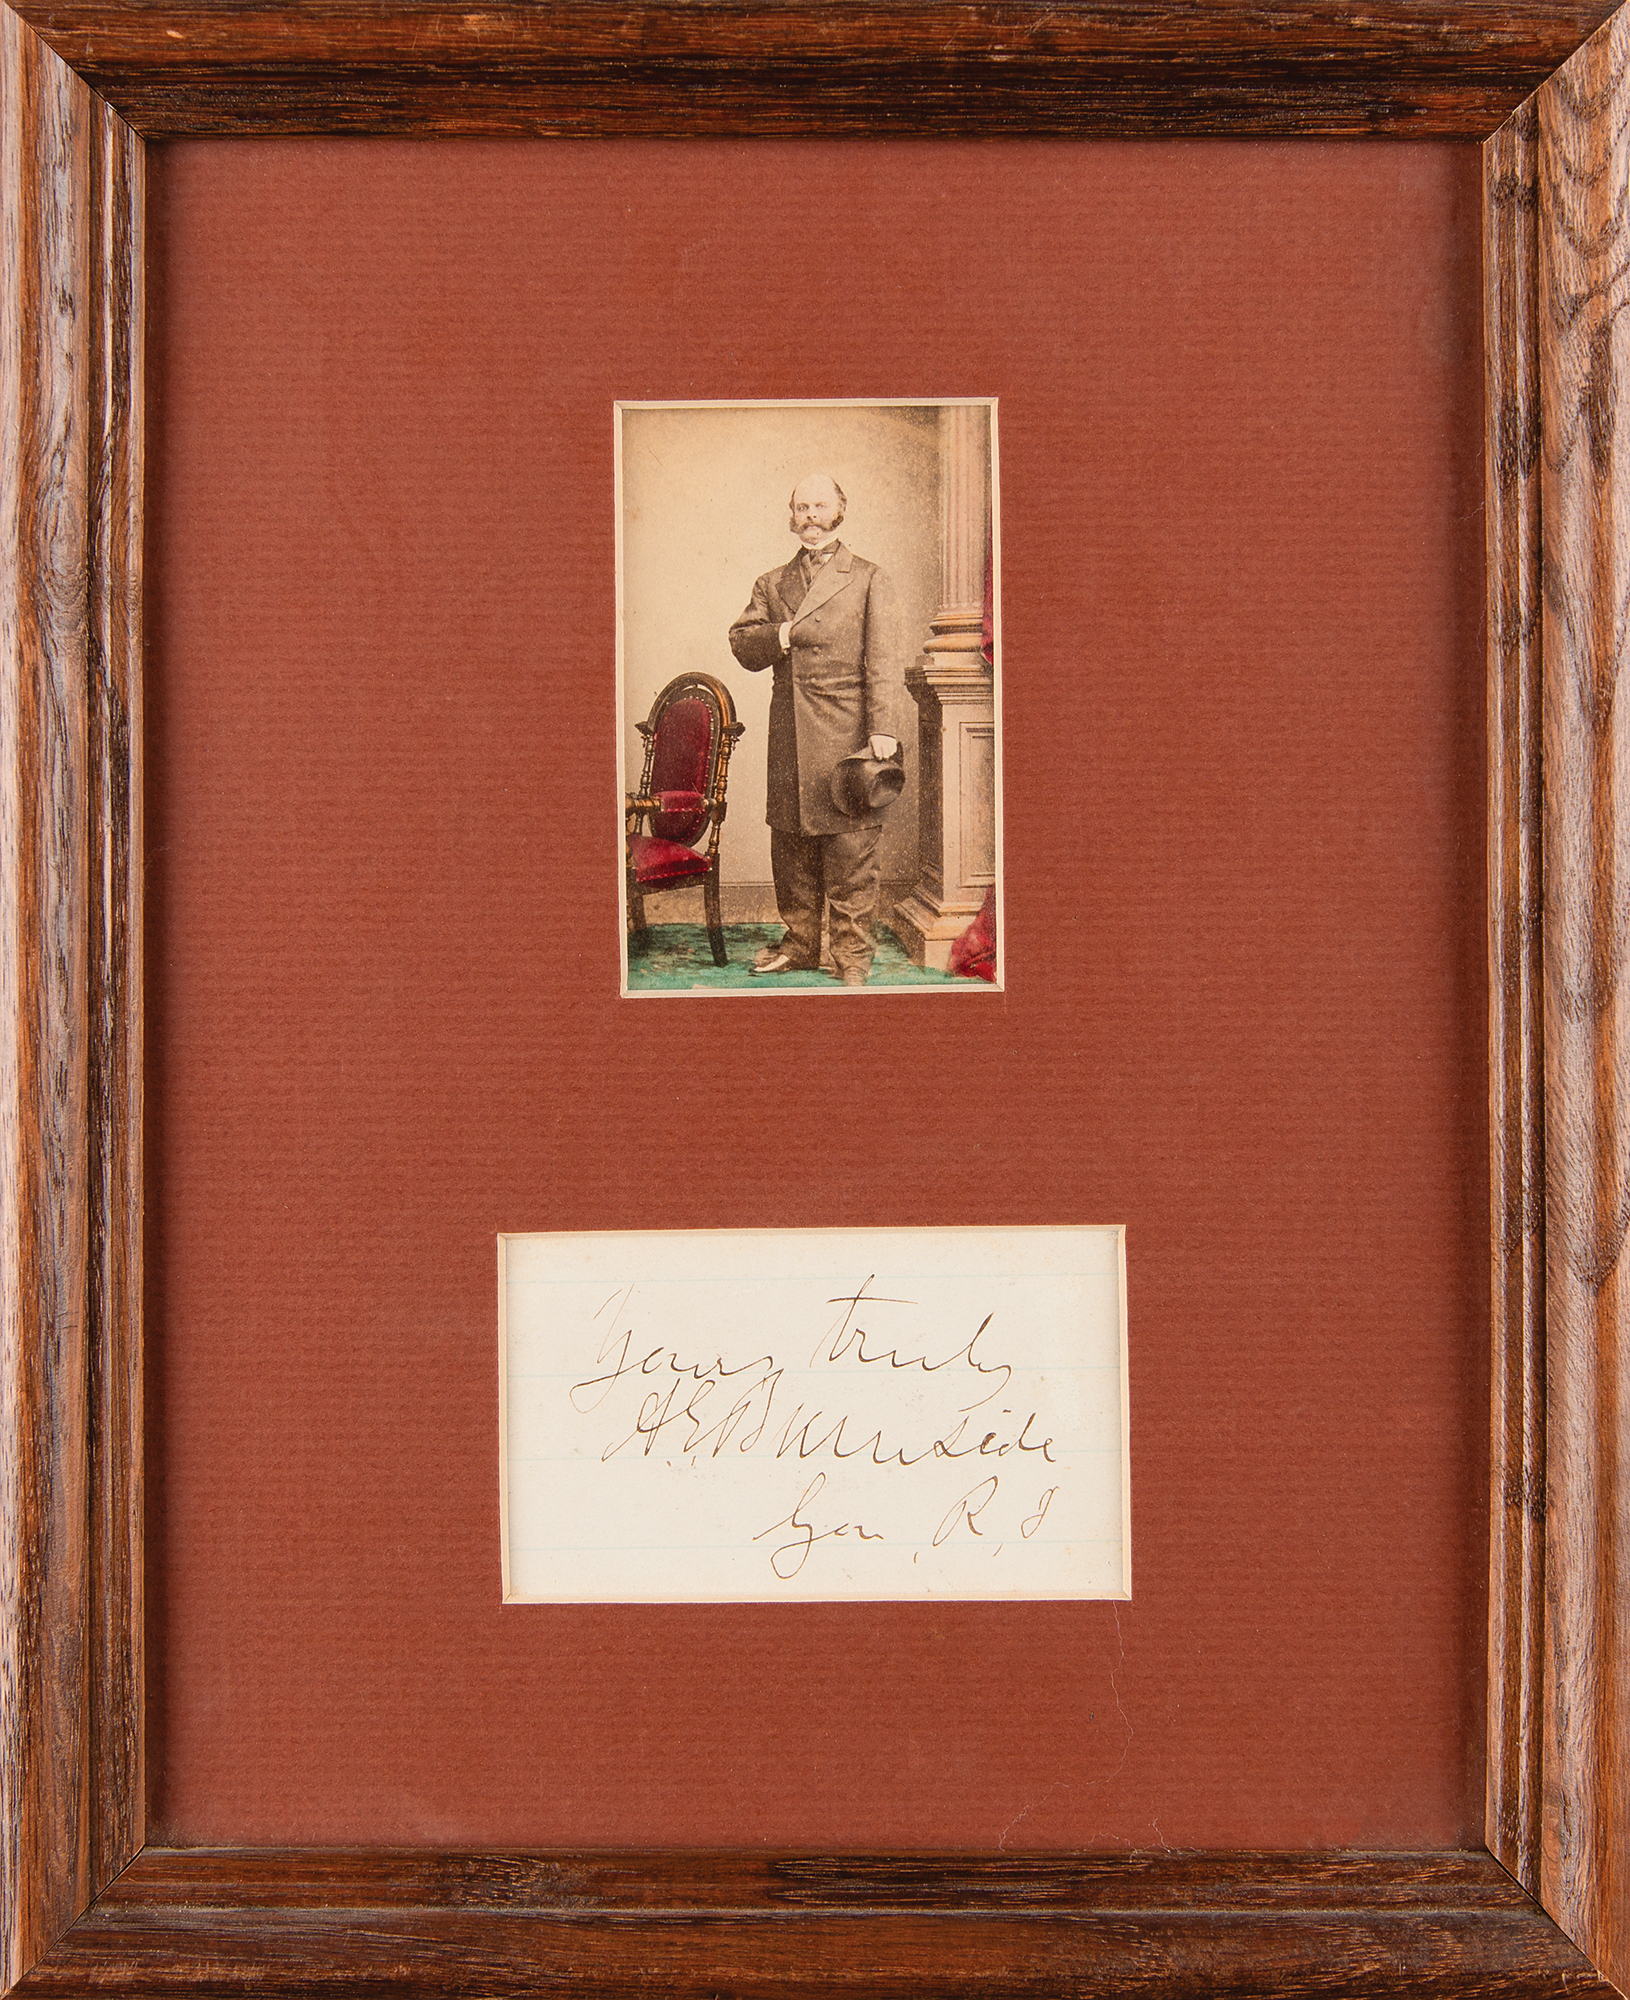 Yours truly
A. E. Burnside
Gen, R, I